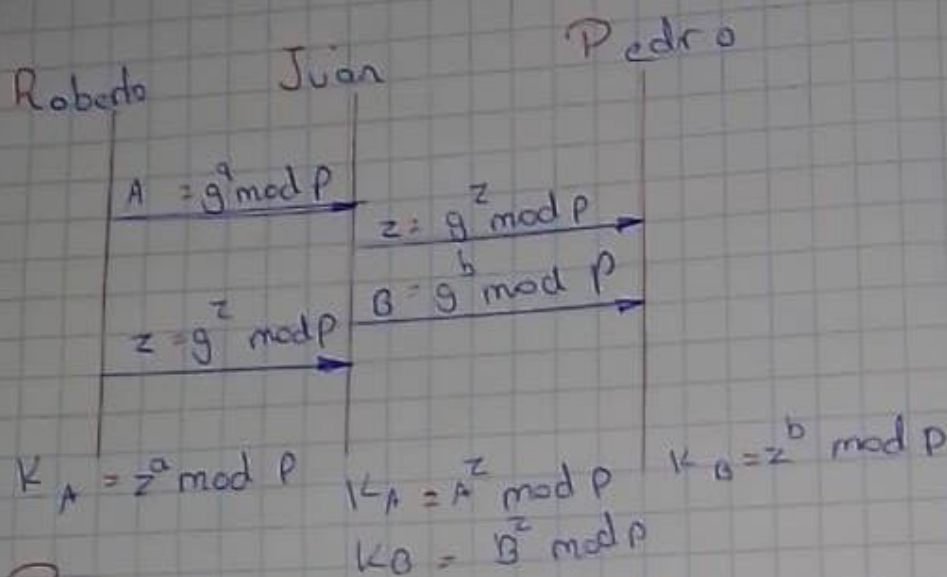 Roberto Juan Pedro
A = g^a mod P
z = g^z mod P
B = g^b mod P
z = g^z mod P
K_A = z^a mod P
K_A = A^z mod P
K_B = z^b mod P
K_B = B^z mod P